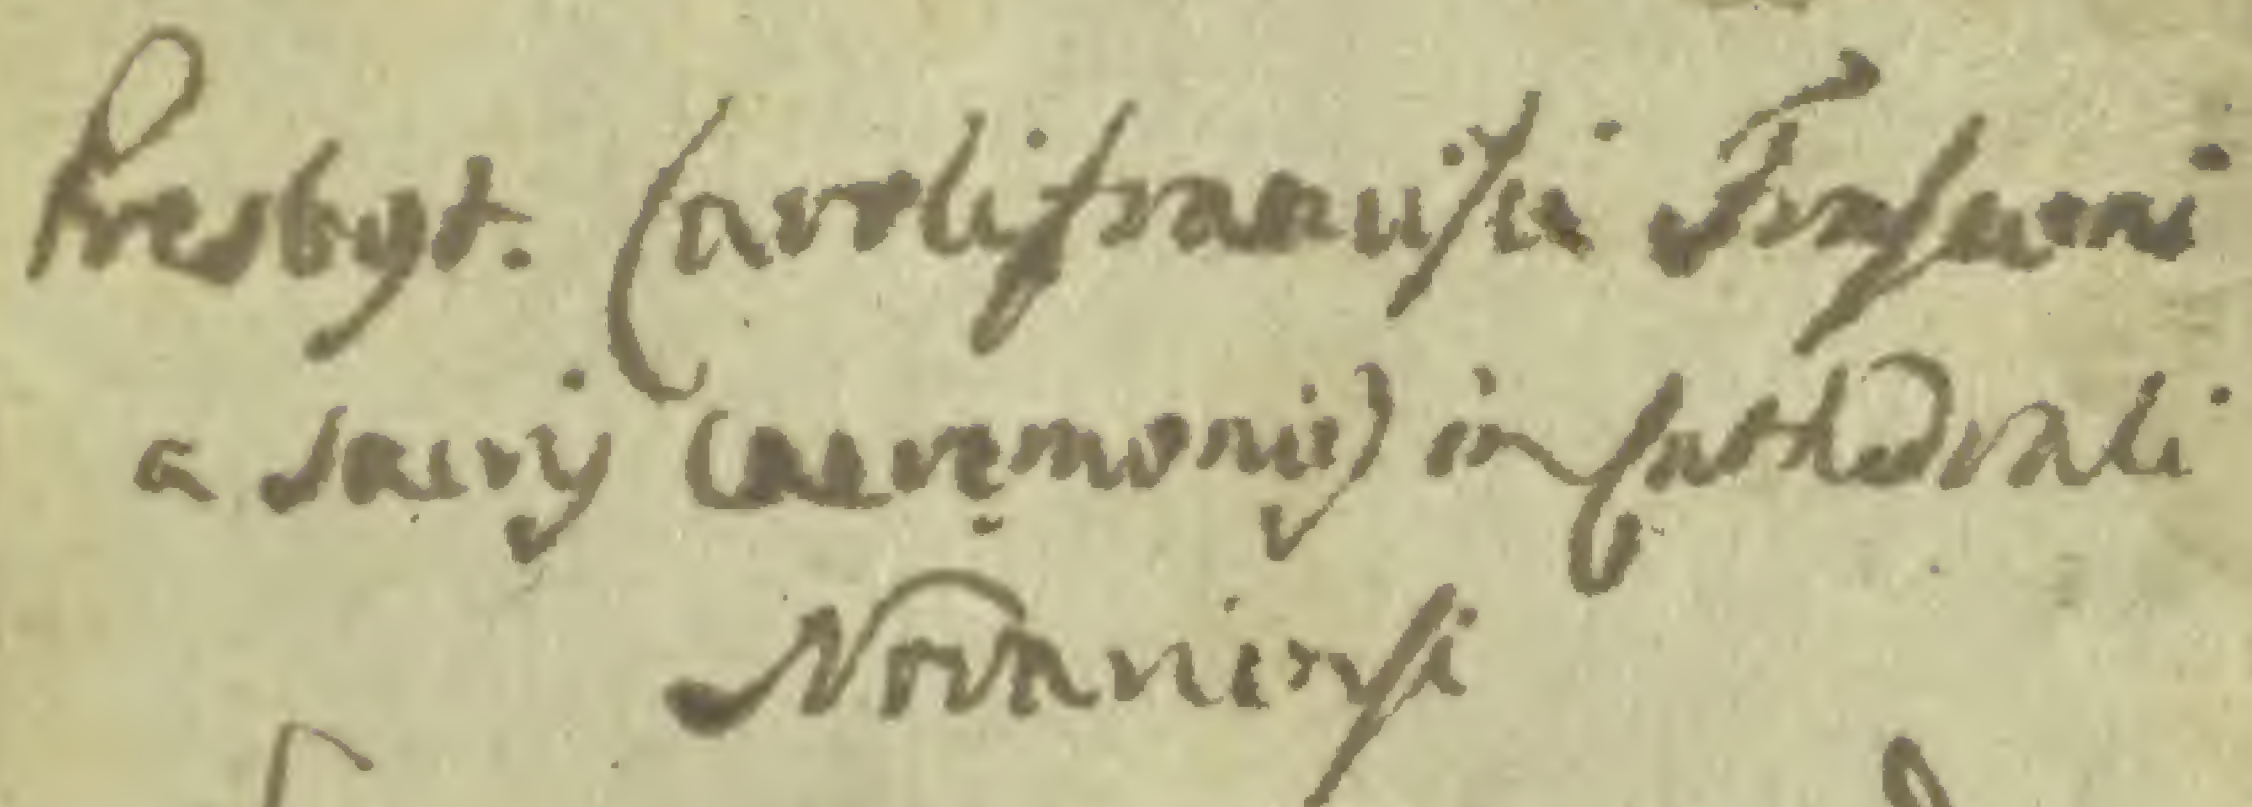 Presbyt. Carolifrancisci
a Sacrij Caeremonijs in Cathedrali
Novariensi